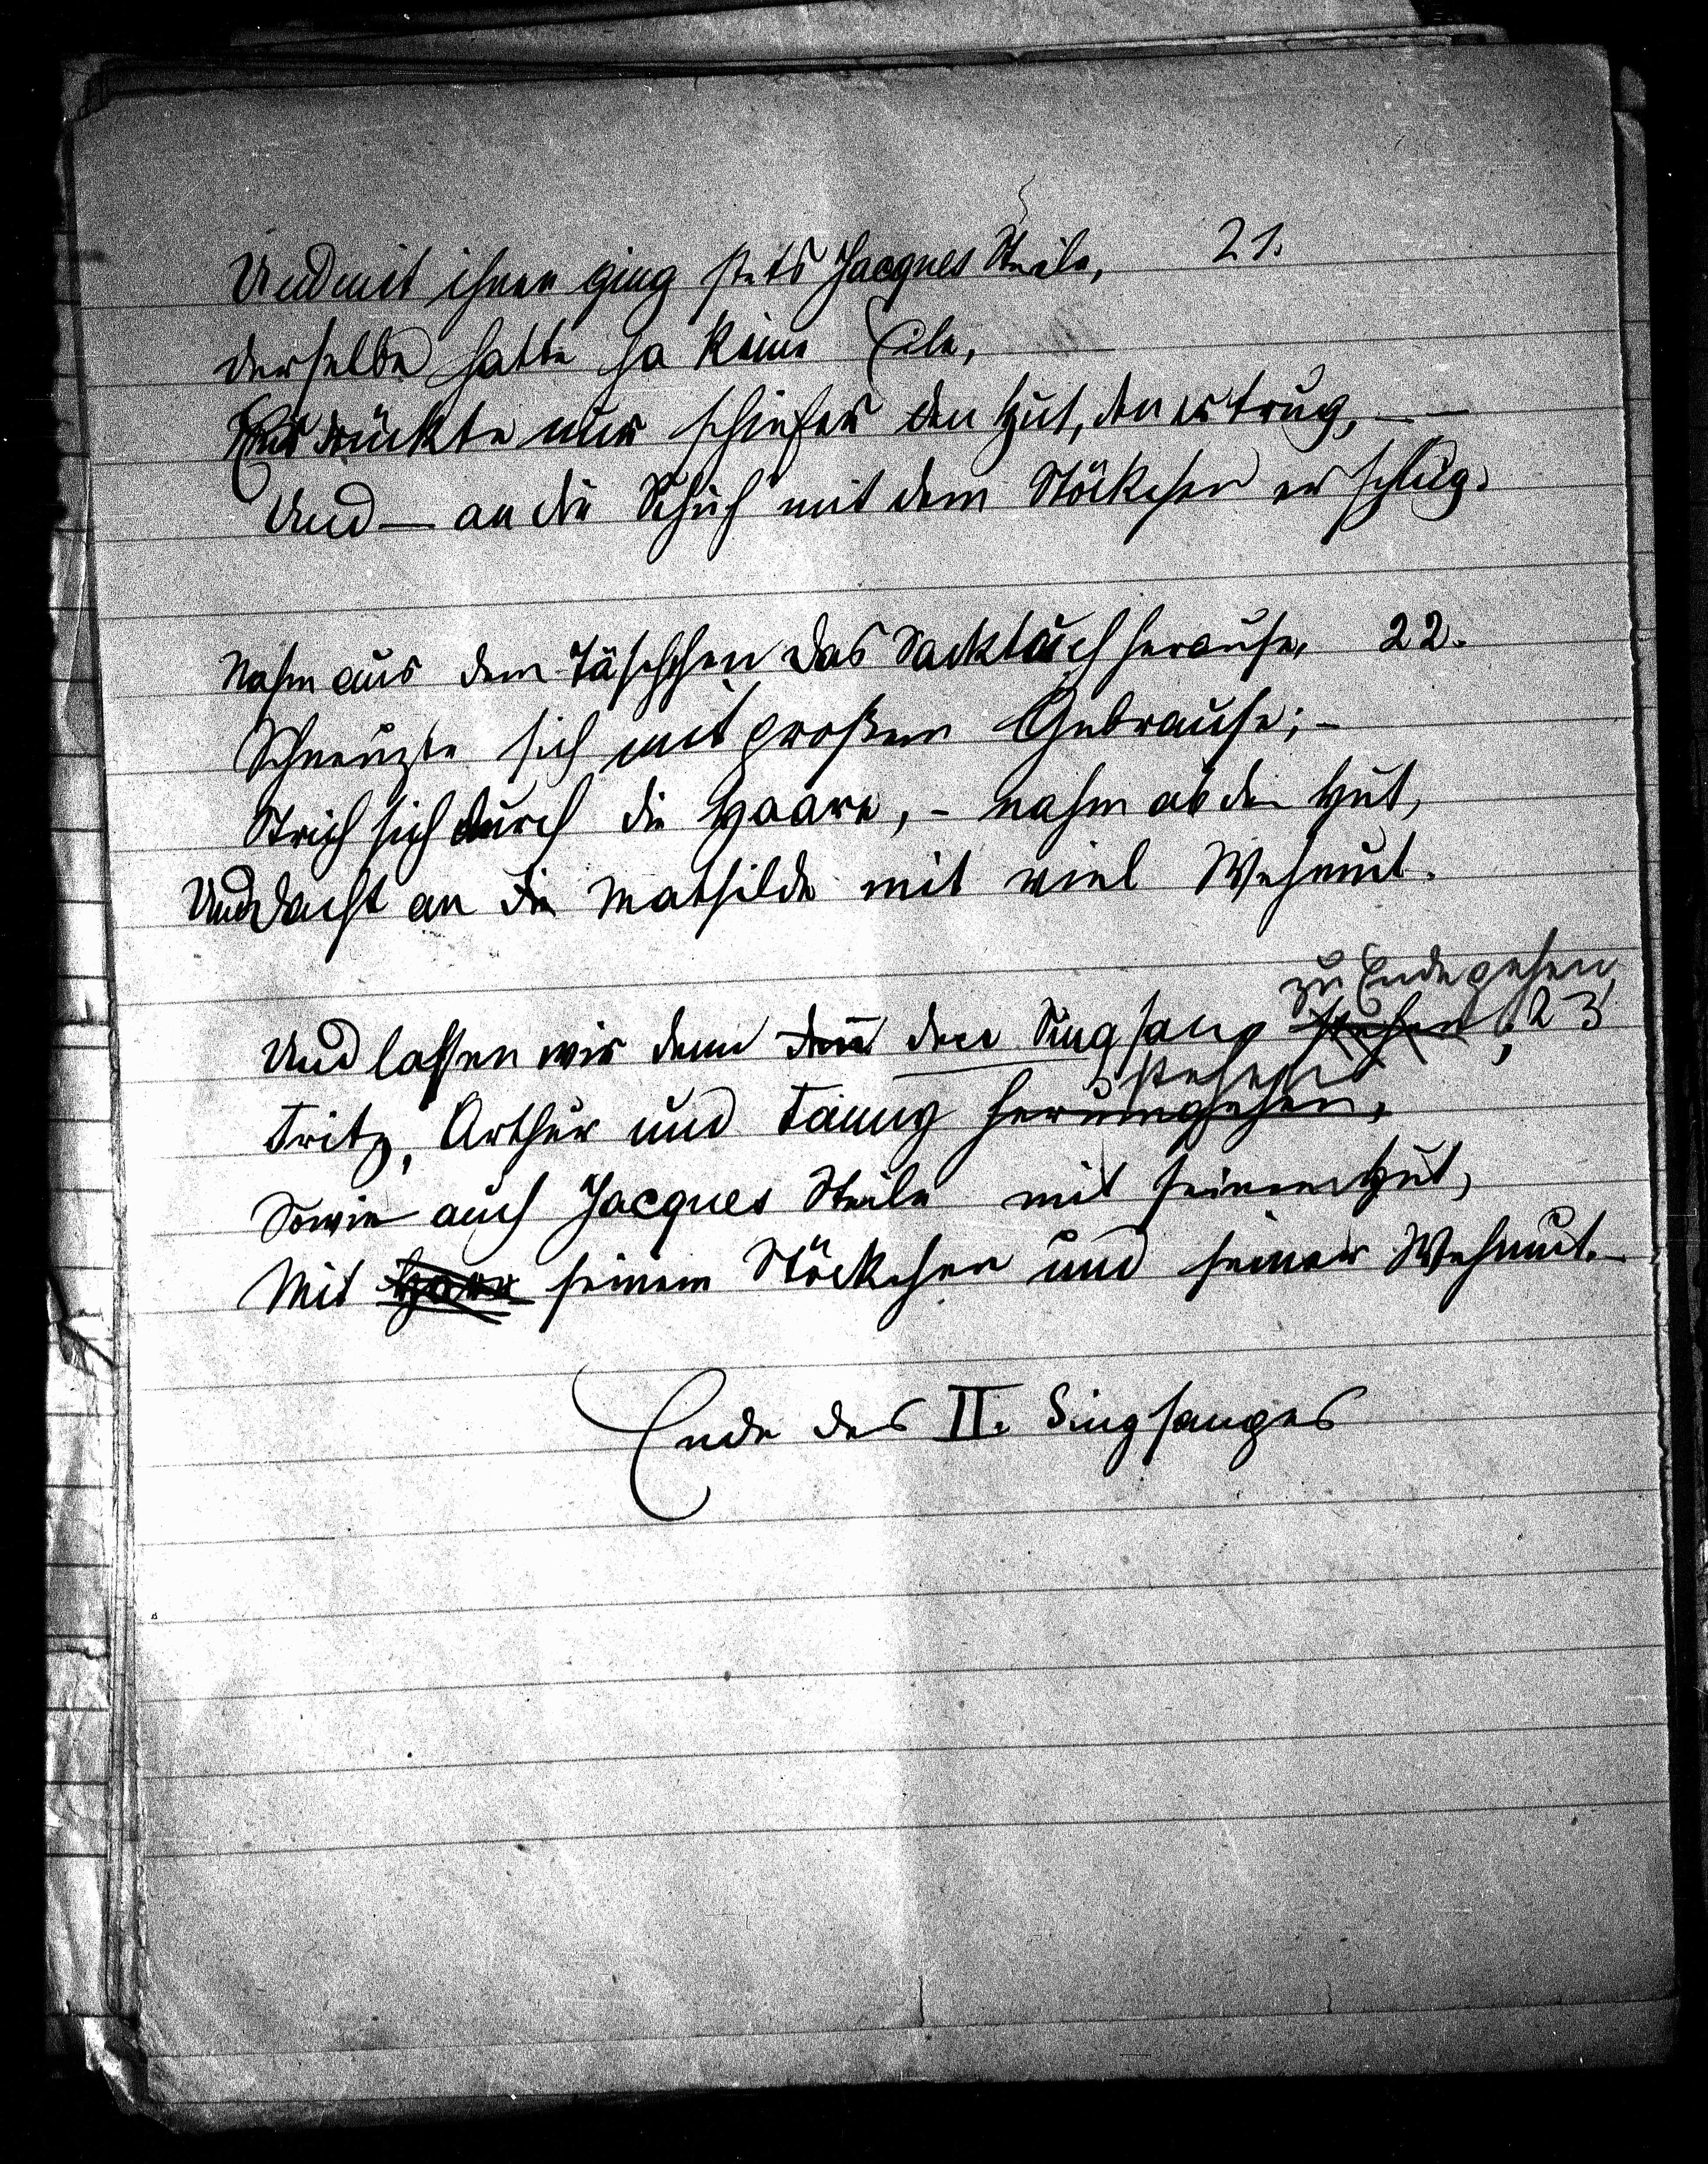 Und mit ihnen ging stets Jacques Steile, 21.
derselbe hatte ja keine Eile,
Er drückte nur schiefer den Hut, den er trug, — —
Und — an die Schuh mit dem Stöckchen er schlug.
Nahm aus dem Täschchen das Sacktuch herause, 22.
Schneuzte sich mit großem Gebrause; –
Strich sich durch die Haare, – nahm ab den Hut,
Und dacht an die Mathilde mit viel Wehmut.
zu Ende gehen
Und lassen wir denn den den Singsang stehen, 23
stehen
Fritz, Arthur und Fanny herumgehen,
Sowie auch Jacques Steile mit seinem Hut,
Mit seinem Stöckchen und seiner Wehmut. –
Ende des II. Singsanges